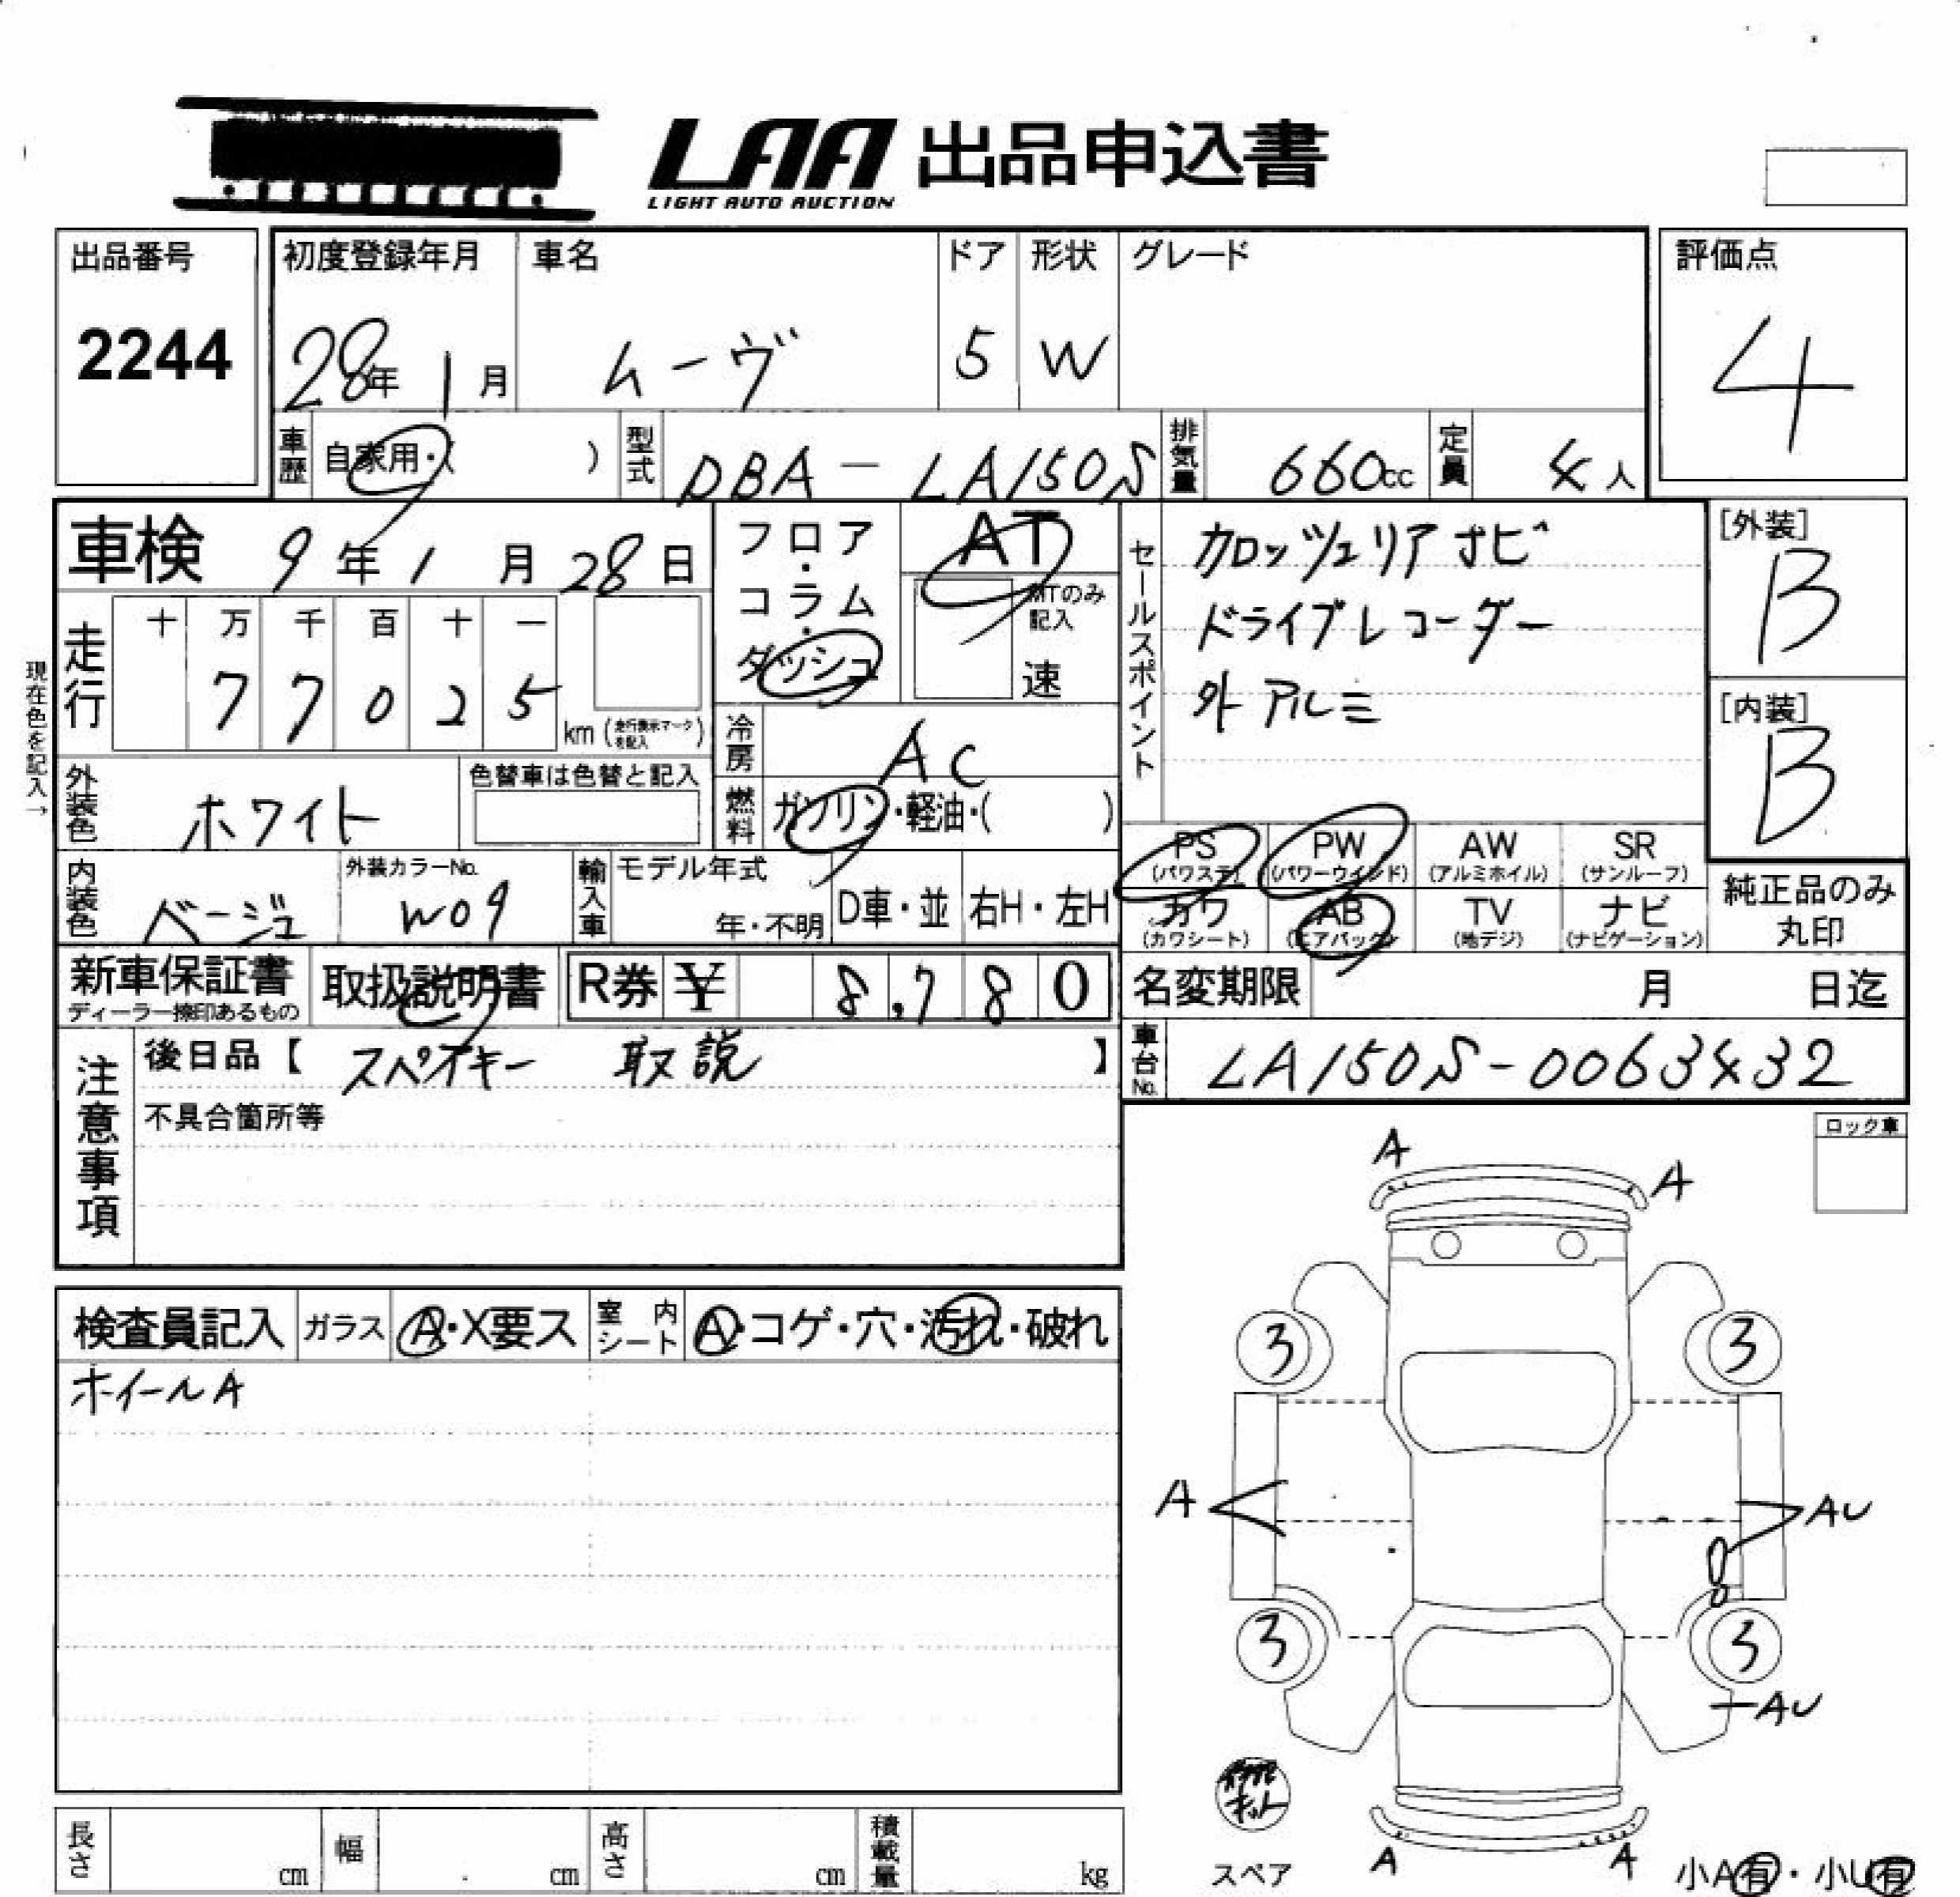 LAA 出品申込書
LIGHT AUTO AUCTION
出品番号
2244
初度登録年月
28年 1月
車名
ムーヴ
ドア
5
形状
W
グレード
評価点
4
車歴
自家用・( )
型式
DBA-LA150S
排気量
660cc
定員
4人
車検 9年 1月 28日
フロア・コラム・ダッシュ
AT
MTのみ記入
速
セールスポイント
カロッツェリアナビ
ドライブレコーダー
外アルミ
[外装]
B
[内装]
B
現在色を記入→
走行
十 万 千 百 十 一
7 7 0 2 5
km (走行表示マークを記入)
冷房
AC
燃料
ガソリン・軽油・( )
外装色
ホワイト
色替車は色替と記入
内装色
ベージュ
外装カラーNo.
W09
輸入車
モデル年式
年・不明
D車・並
右H・左H
PS (パワステ)
PW (パワーウインド)
AW (アルミホイル)
SR (サンルーフ)
カワ (カワシート)
AB (エアバック)
TV (地デジ)
ナビ (ナビゲーション)
純正品のみ
丸印
新車保証書
ディーラー捺印あるもの
取扱説明書
R券 ¥ 8,780
名変期限 月 日迄
車台No. LA150S-0063432
注意事項
後日品【 スペアキー 取説 】
不具合箇所等
ロック車
検査員記入
ガラス A・X要ス
室内シート A・コゲ・穴・汚れ・破れ
ホイールA
A
A
3
3
A
AU
3
3
AU
スペア
A
A
小A有・小U有
長さ cm
幅 cm
高さ cm
積載量 kg